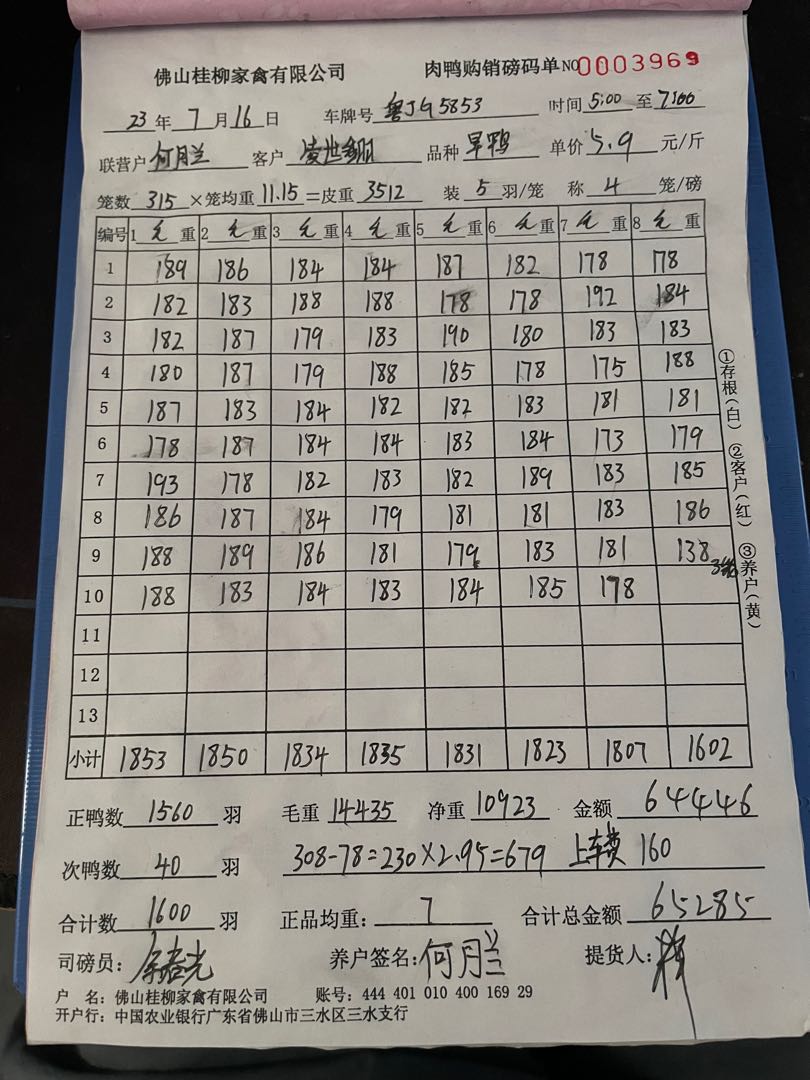 佛山桂柳家禽有限公司 肉鸭购销磅码单 NO 0003969
23 年 7 月 16 日 车牌号 粤J G5853 时间 5:00 至 7:00
联营户 何月兰 客户 品种 旱鸭 单价 5.9 元/斤
笼数 315 ×笼均重 11.15 =皮重 3512 装 5 羽/笼 称 4 笼/磅
编号 1 毛 重 2 毛 重 3 毛 重 4 毛 重 5 毛 重 6 毛 重 7 毛 重 8 毛 重
1 189 186 184 184 187 182 178 178
2 182 183 188 188 178 178 192 184
3 182 187 179 183 190 180 183 183
4 180 187 179 188 185 178 175 188
5 187 183 184 182 182 183 181 181
6 178 187 184 184 183 184 173 179
7 193 178 182 183 182 189 183 185
8 186 187 184 179 181 181 183 186
9 188 189 186 181 179 183 181 138 3笼
10 188 183 184 183 184 185 178
11
12
13
小计 1853 1850 1834 1835 1831 1823 1807 1602
①存根(白) ②客户(红) ③养户(黄)
正鸭数 1560 羽 毛重 14435 净重 10923 金额 64446
次鸭数 40 羽 308-78=230×2.95=679 上车费 160
合计数 1600 羽 正品均重: 7 合计总金额 65285
司磅员: 养户签名: 何月兰 提货人:
户 名: 佛山桂柳家禽有限公司 账号: 444 401 010 400 169 29
开户行: 中国农业银行广东省佛山市三水区三水支行